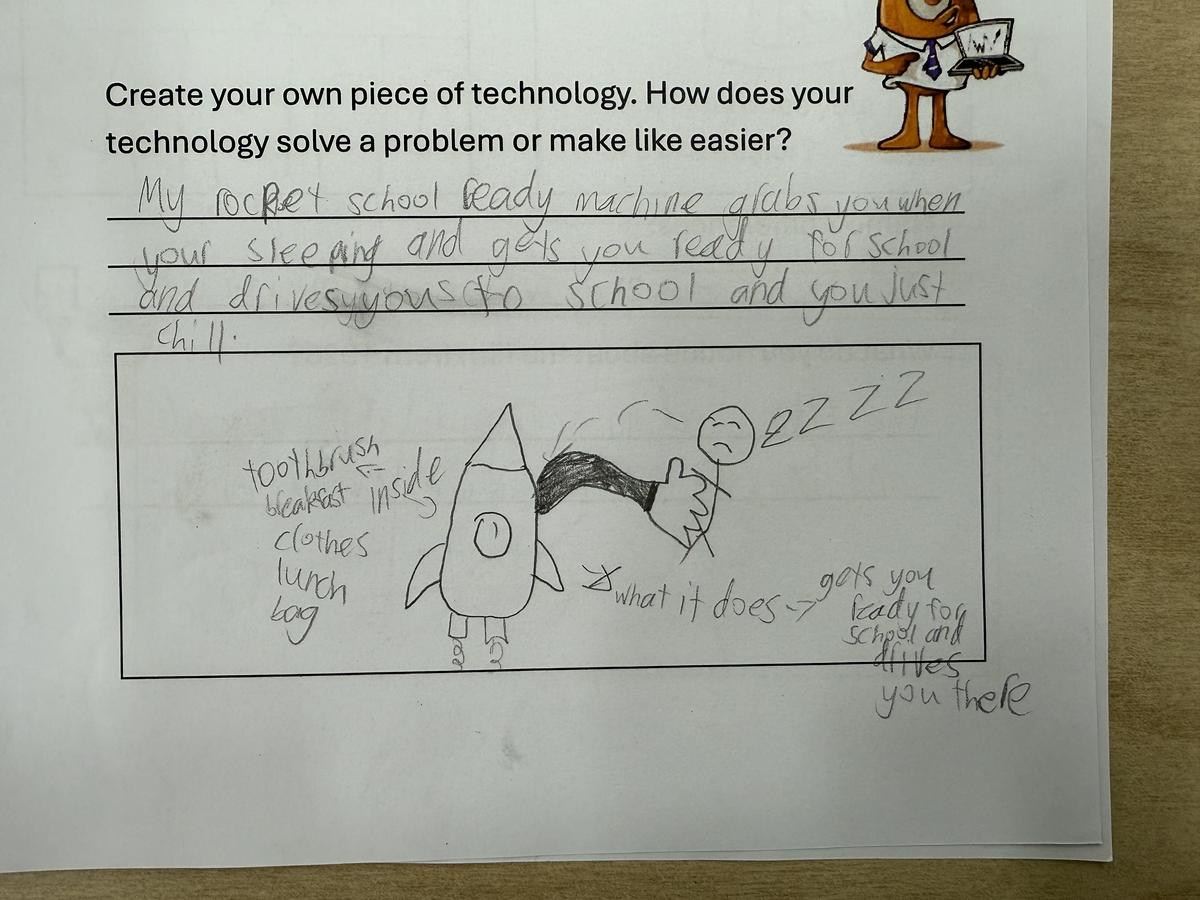 Create your own piece of technology. How does your
technology solve a problem or make like easier?
My rocket school ready machine grabs you when
your sleeping and gets you ready for school
and drives you to school and you just
chill.
ZZZZ
toothbrush
breakfast
clothes
lunch
bag
inside
what it does →
gets you
ready for
school and
drives
you there
W